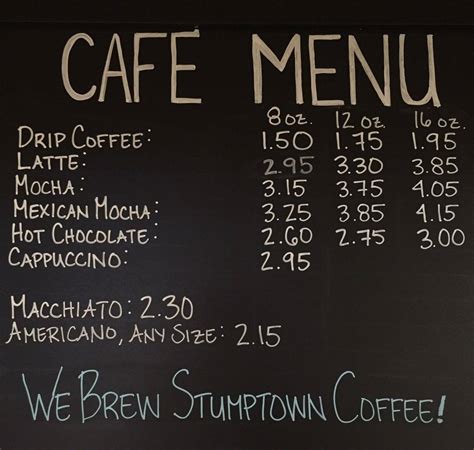 CAFE MENU
8 oz. 12 oz. 16 oz.
DRIP COFFEE: 1.50 1.75 1.95
LATTE: 2.95 3.30 3.85
MOCHA: 3.15 3.75 4.05
MEXICAN MOCHA: 3.25 3.85 4.15
HOT CHOCOLATE: 2.60 2.75 3.00
CAPPUCCINO: 2.95
MACCHIATO: 2.30
AMERICANO, ANY SIZE: 2.15
WE BREW STUMPTOWN COFFEE!